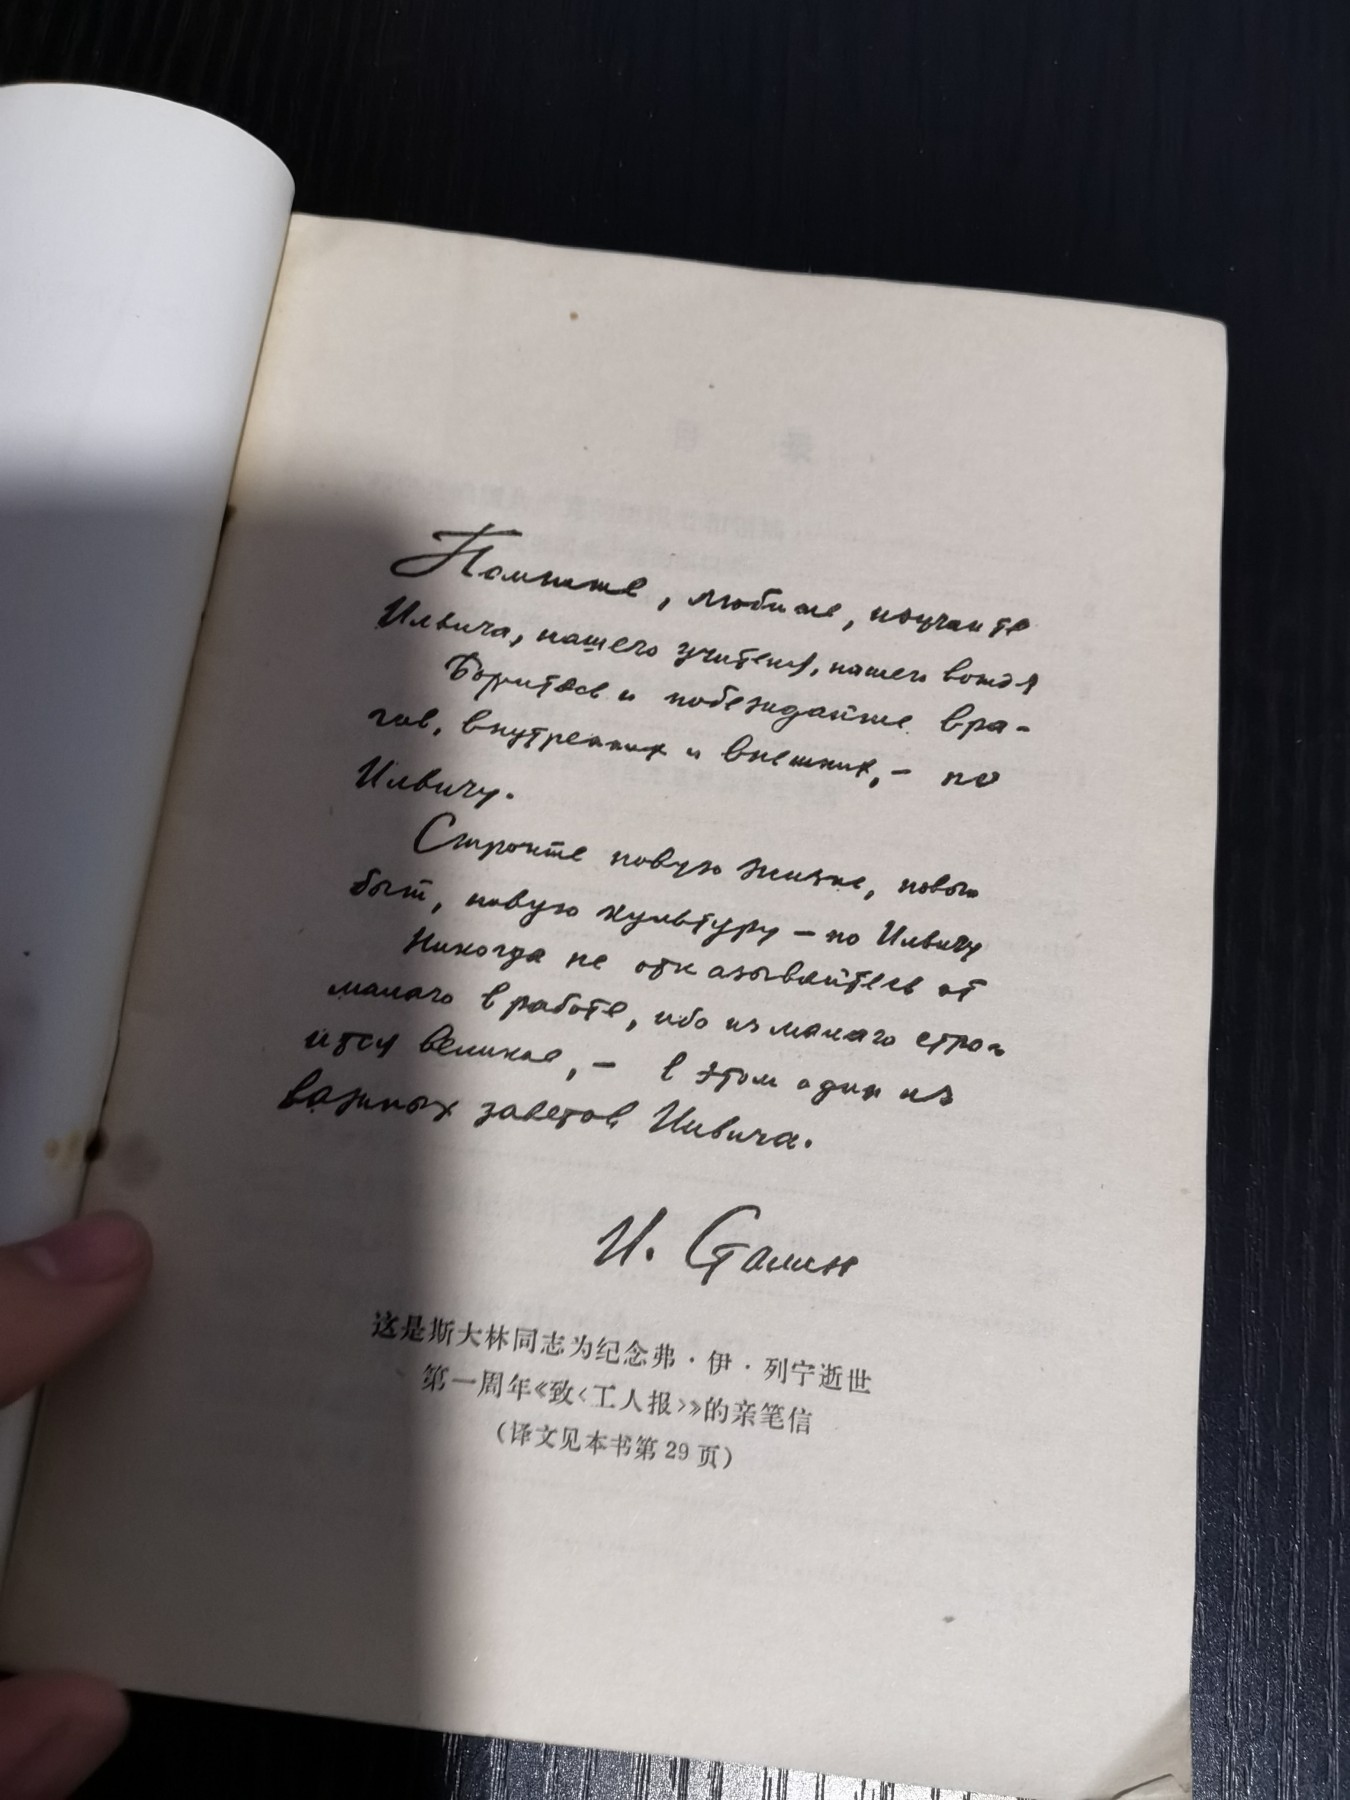 Помните, любите, изучайте
Ильича, нашего учителя, нашего вождя
Боритесь и побеждайте вра-
гов, внутренних и внешних, – по
Ильичу.
Стройте новую жизнь, новый
быт, новую культуру – по Ильичу
Никогда не отказывайтесь от
малого в работе, ибо из малаго стро-
ится великое, – в этом один из
важных заветов Ильича.
И. Сталин
这是斯大林同志为纪念弗·伊·列宁逝世
第一周年《致〈工人报〉》的亲笔信
(译文见本书第 29 页)